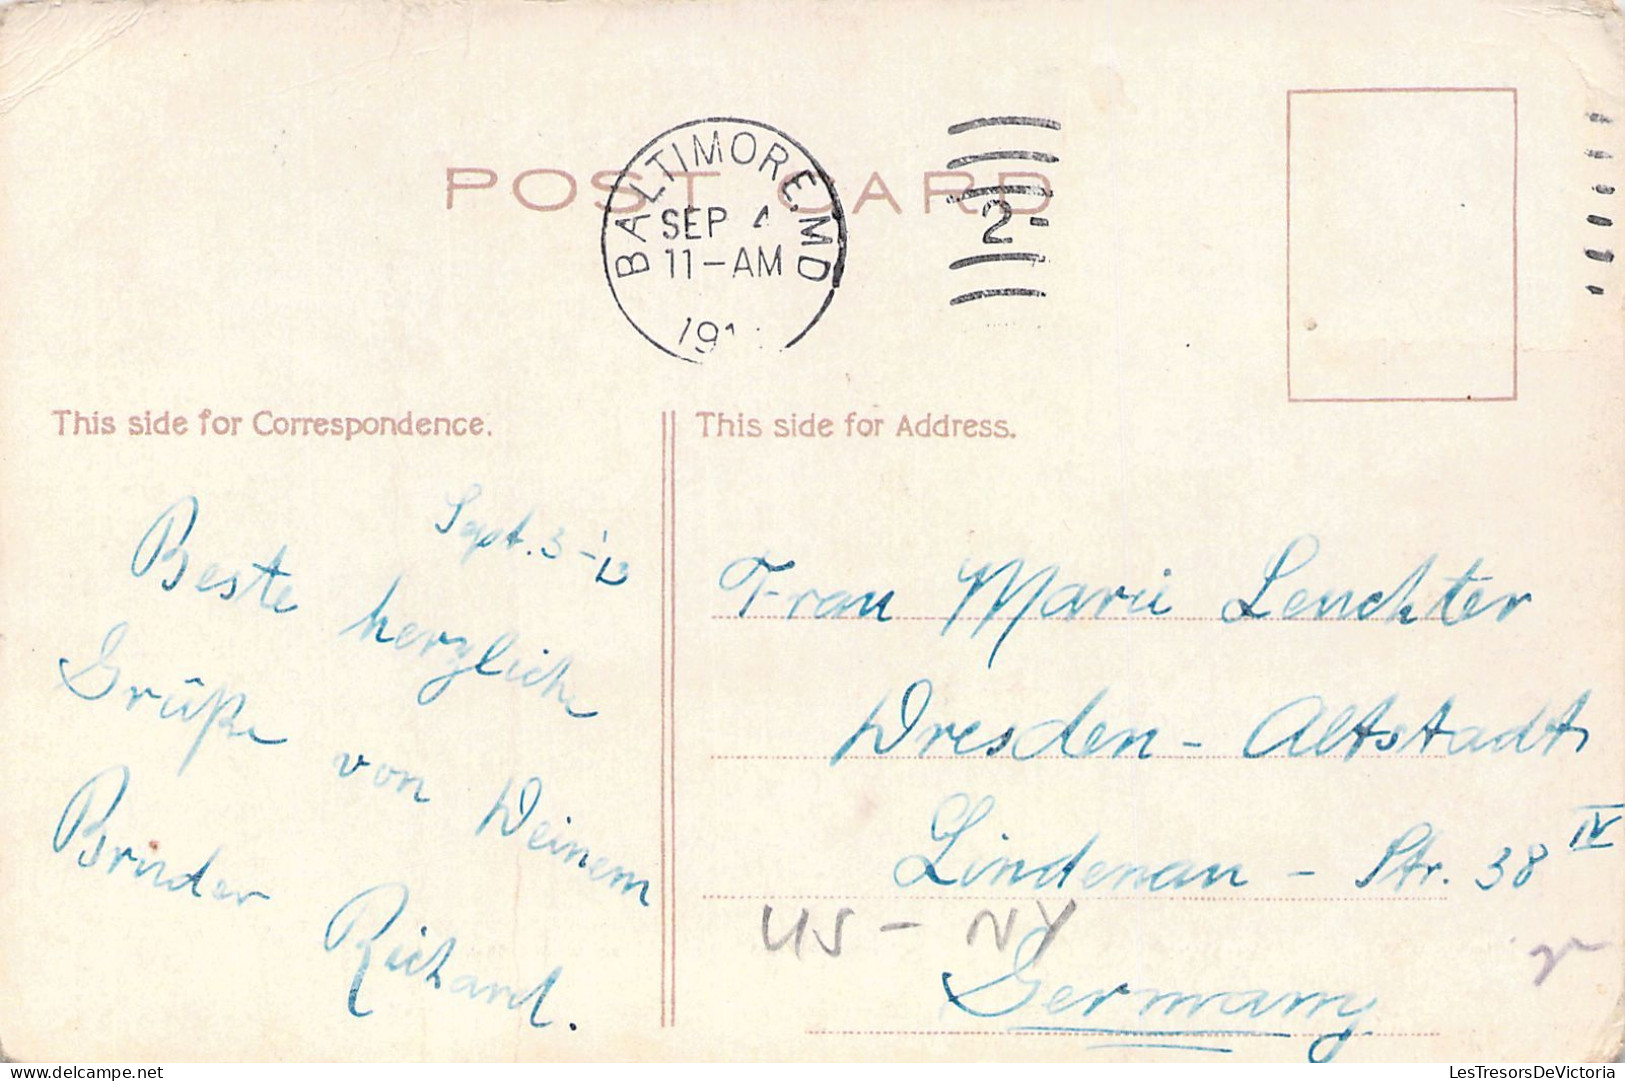 POST CARD
BALTIMORE, MD
SEP 4
11-AM
191
2
This side for Correspondence.
This side for Address.
Sept. 3-'13
Beste herzliche
Grüße von Deinem
Bruder Richard.
Frau Marie Leuchter
Dresden - Altstadt
Lindenau - Str. 38 IV
US - NY
Germany
delcampe.net
LesTresorsDeVictoria